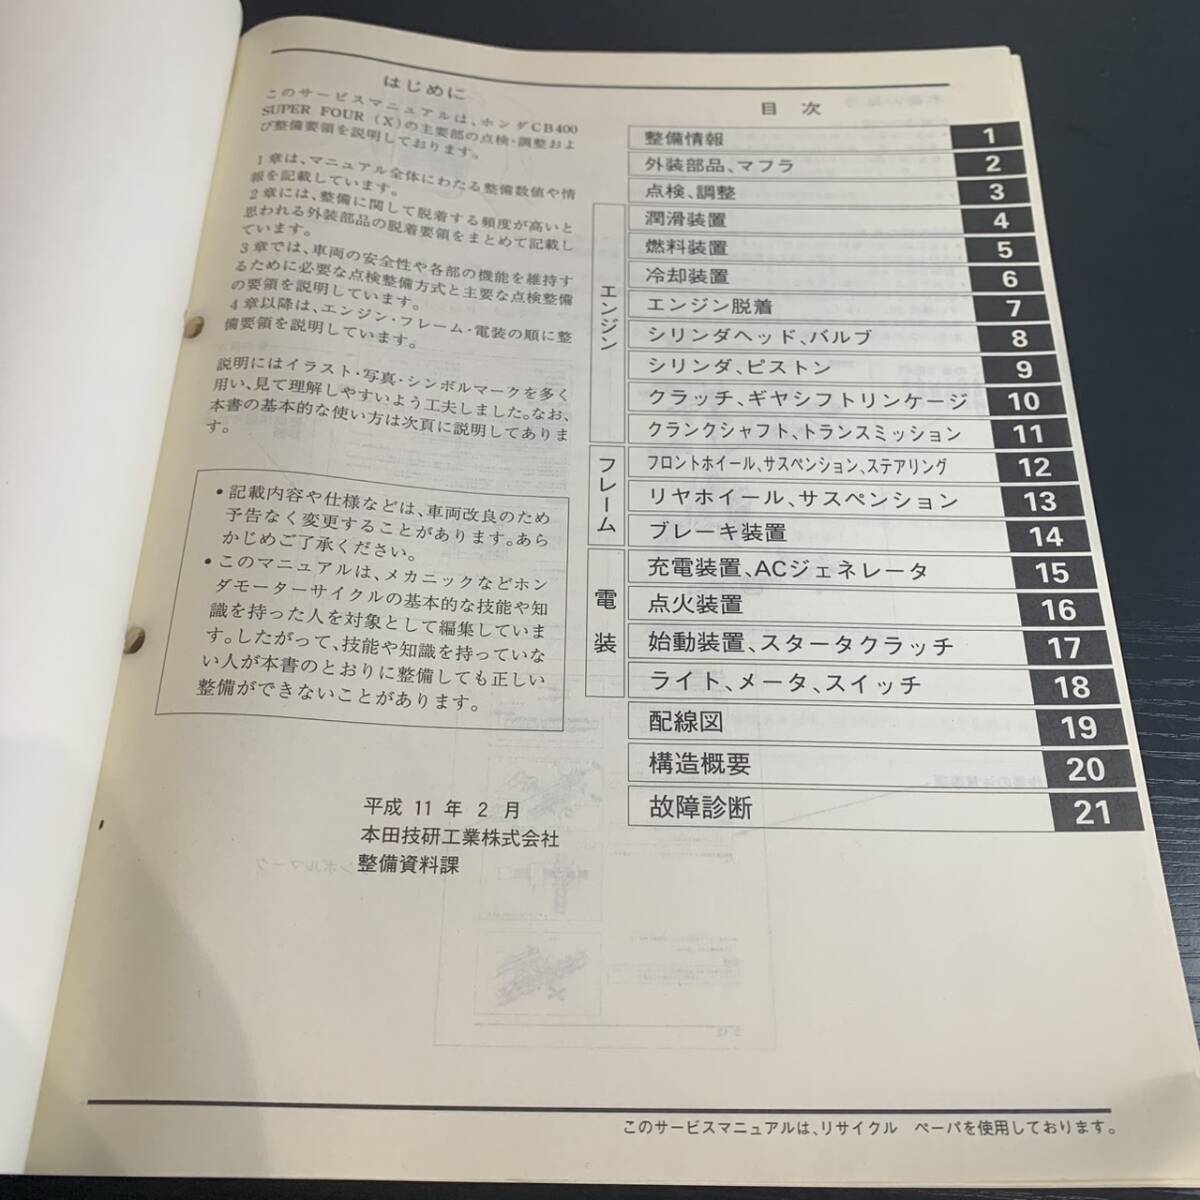 はじめに
このサービスマニュアルは、ホンダCB400
SUPER FOUR (X)の主要部の点検・調整およ
び整備要領を説明しております。
1章は、マニュアル全体にわたる整備数値や情
報を記載しています。
2章には、整備に関して脱着する頻度が高いと
思われる外装部品の脱着要領をまとめて記載し
ています。
3章では、車両の安全性や各部の機能を維持す
るために必要な点検整備方式と主要な点検整備
の要領を説明しています。
4章以降は、エンジン・フレーム・電装の順に整
備要領を説明しています。
説明にはイラスト・写真・シンボルマークを多く
用い、見て理解しやすいよう工夫しました。なお、
本書の基本的な使い方は次頁に説明してありま
す。
• 記載内容や仕様などは、車両改良のため
予告なく変更することがあります。あら
かじめご了承ください。
• このマニュアルは、メカニックなどホン
ダモーターサイクルの基本的な技能や知
識を持った人を対象として編集していま
す。したがって、技能や知識を持っていな
い人が本書のとおりに整備しても正しい
整備ができないことがあります。
平成 11 年 2 月
本田技研工業株式会社
整備資料課
目 次
整備情報 1
外装部品、マフラ 2
点検、調整 3
エンジン
潤滑装置 4
燃料装置 5
冷却装置 6
エンジン脱着 7
シリンダヘッド、バルブ 8
シリンダ、ピストン 9
クラッチ、ギヤシフトリンケージ 10
クランクシャフト、トランスミッション 11
フレーム
フロントホイール、サスペンション、ステアリング 12
リヤホイール、サスペンション 13
ブレーキ装置 14
電装
充電装置、ACジェネレータ 15
点火装置 16
始動装置、スタータクラッチ 17
ライト、メータ、スイッチ 18
配線図 19
構造概要 20
故障診断 21
このサービスマニュアルは、リサイクル ペーパを使用しております。